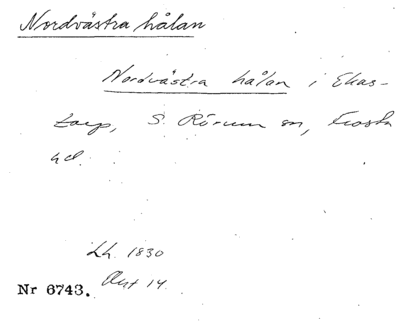 Nordvästra hålan
Nordvästra hålan i Ekas-
torp, S. Rörum sn, Frosta
hd.
Lh. 1830
Akt 14.
Nr 6743.